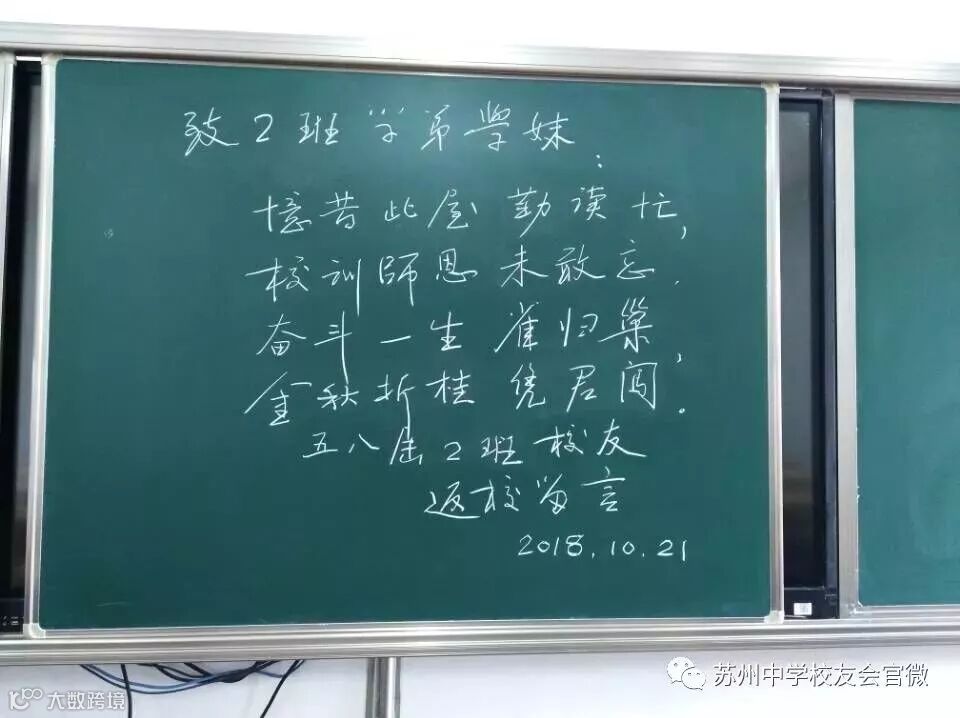 致2班学弟学妹:
憶昔此屋勤读忙,
校训師恩未敢忘.
奋斗一生雀归巢,
金秋折桂凭君闯.
五八届2班校友
返校留言
2018.10.21
苏州中学校友会官微
大数跨境